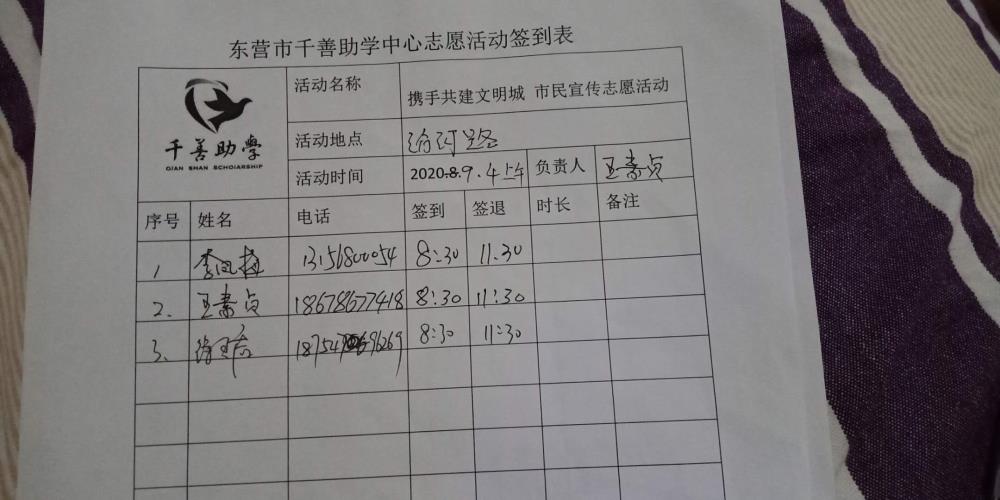 东营市千善助学中心志愿活动签到表
千善助学
QIAN SHAN SCHOLARSHIP
活动名称 携手共建文明城 市民宣传志愿活动
活动地点 路
活动时间 2020.8.9.4上午 负责人 王素贞
序号 姓名 电话 签到 签退 时长 备注
1, 李凤梅 13156800054 8:30 11.30
2. 王素贞 18678677418 8:30 11:30
3、 8:30 11:30